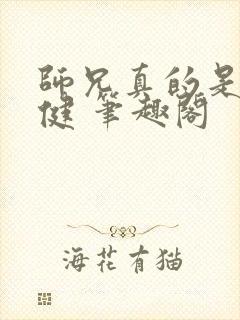 師兄真的是
健 筆趣閣
海花有猫